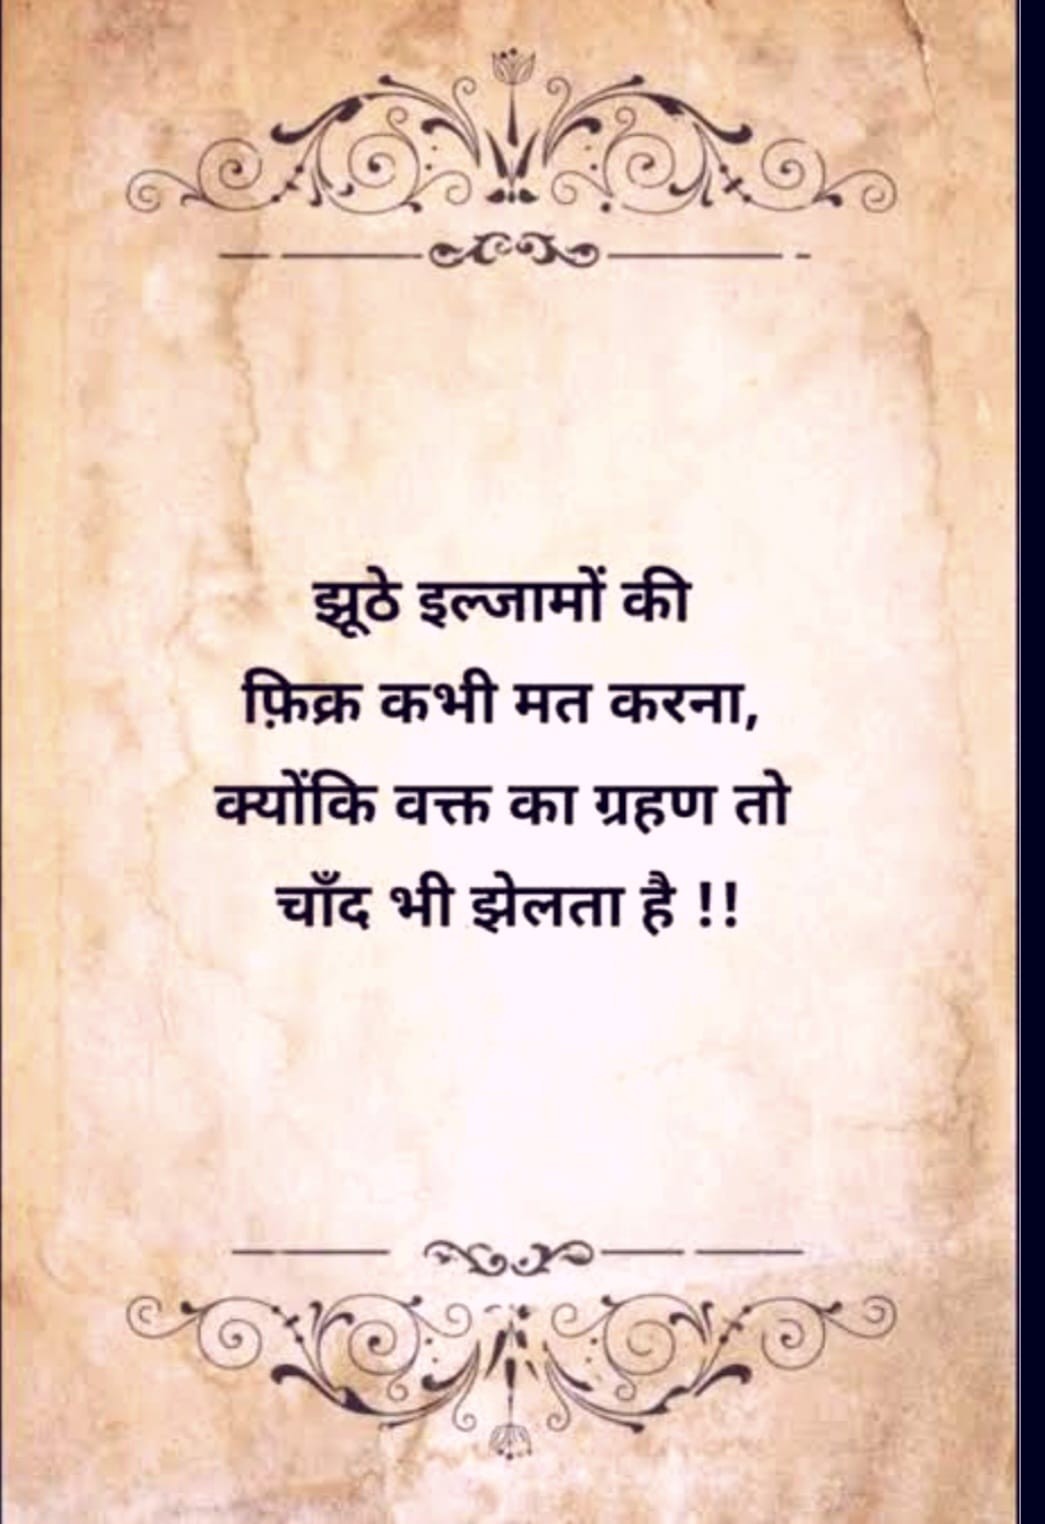 झूठे इल्जामों की
फ़िक्र कभी मत करना,
क्योंकि वक्त का ग्रहण तो
चाँद भी झेलता है !!